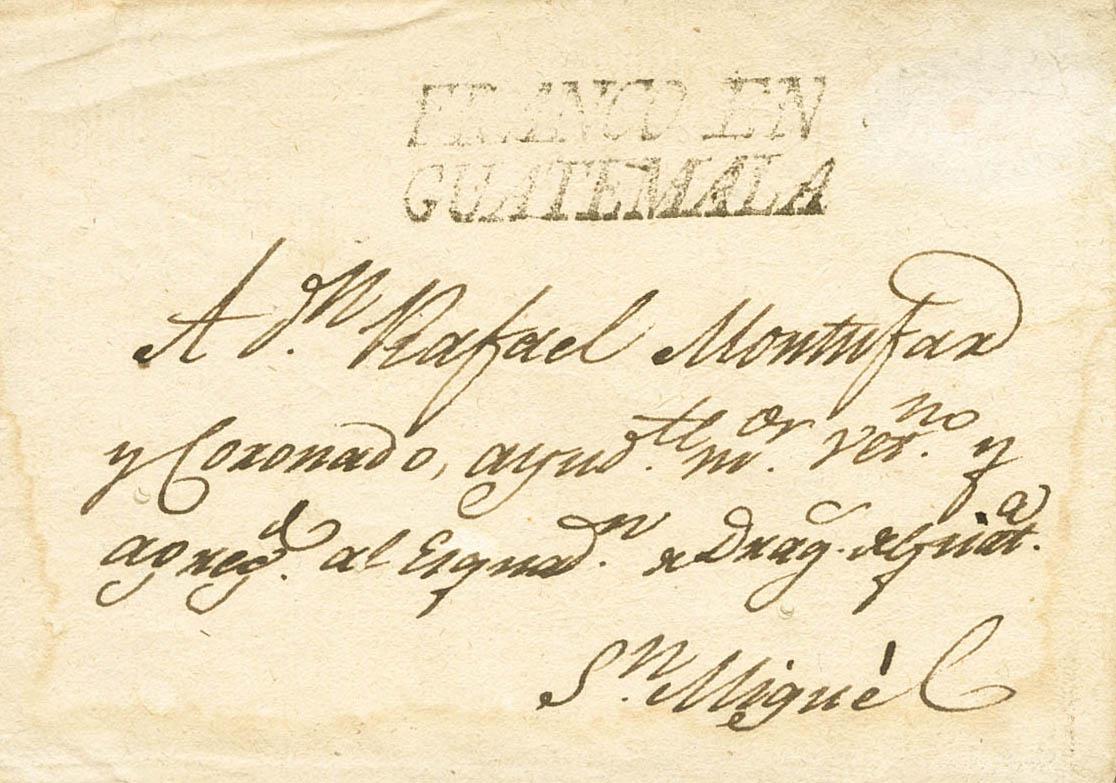 FRANCO.EN
GUATEMALA
A Dn. Rafael Montufar
y Coronado, ayud.te mor. Vet.no y
agreg.do al Esquad.n de Drag.s de Guat.a
Sn. Miguèl